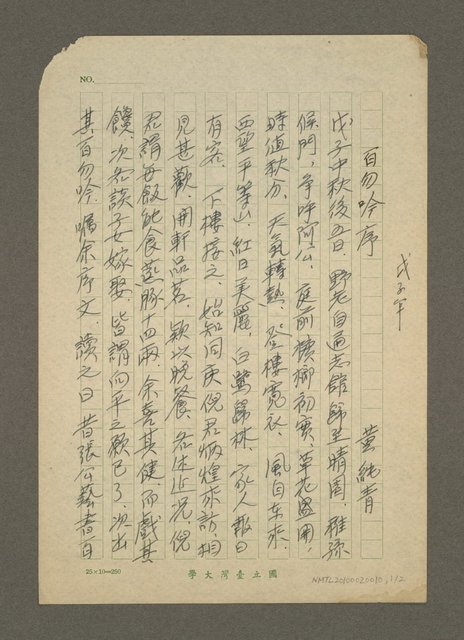 NO.
戊子年
百勿吟序
黃純青
戊子中秋後五日、野老自通志館歸至晴園、稚孫
候門、爭呼阿公、庭前檳榔初實、草花盛開、
時值秋分、天氣轉熱、登樓寬衣、風自東來、
西望平等山、紅日美麗、白鷺歸林、家人報曰
有客、下樓接之、始知同庚倪君炳煌來訪、相
見甚歡、開軒品茗、款以晚餐、各述近況、倪
君謂每飯能食蒸豚十四兩、余喜其健、而戲其
饞、次各談子女嫁娶、皆謂向平之願已了、次出
其百勿吟、囑余序文、讀之曰昔張公藝書百
25×10=250
國立臺灣大學
NMTL20100020010, 1/2